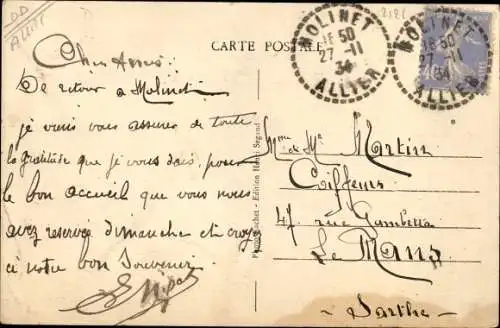 DD
ALLIER
CARTE POSTALE
MOLINET
18 50
27 -11
34
ALLIER
MOLINET
18 50
27 -11
34
ALLIER
Chers Amis
De retour a Molinet
je viens vous assurer de toute
la gratitude que je vous dois, pour
le bon accueil que vous nous
avez reservé dimanche et croyez
a notre bon Souvenir
Mme & Mr Martin
Coiffeurs
47 rue Gambetta
Le Mans
- Sarthe -
Edition Henri Segaud